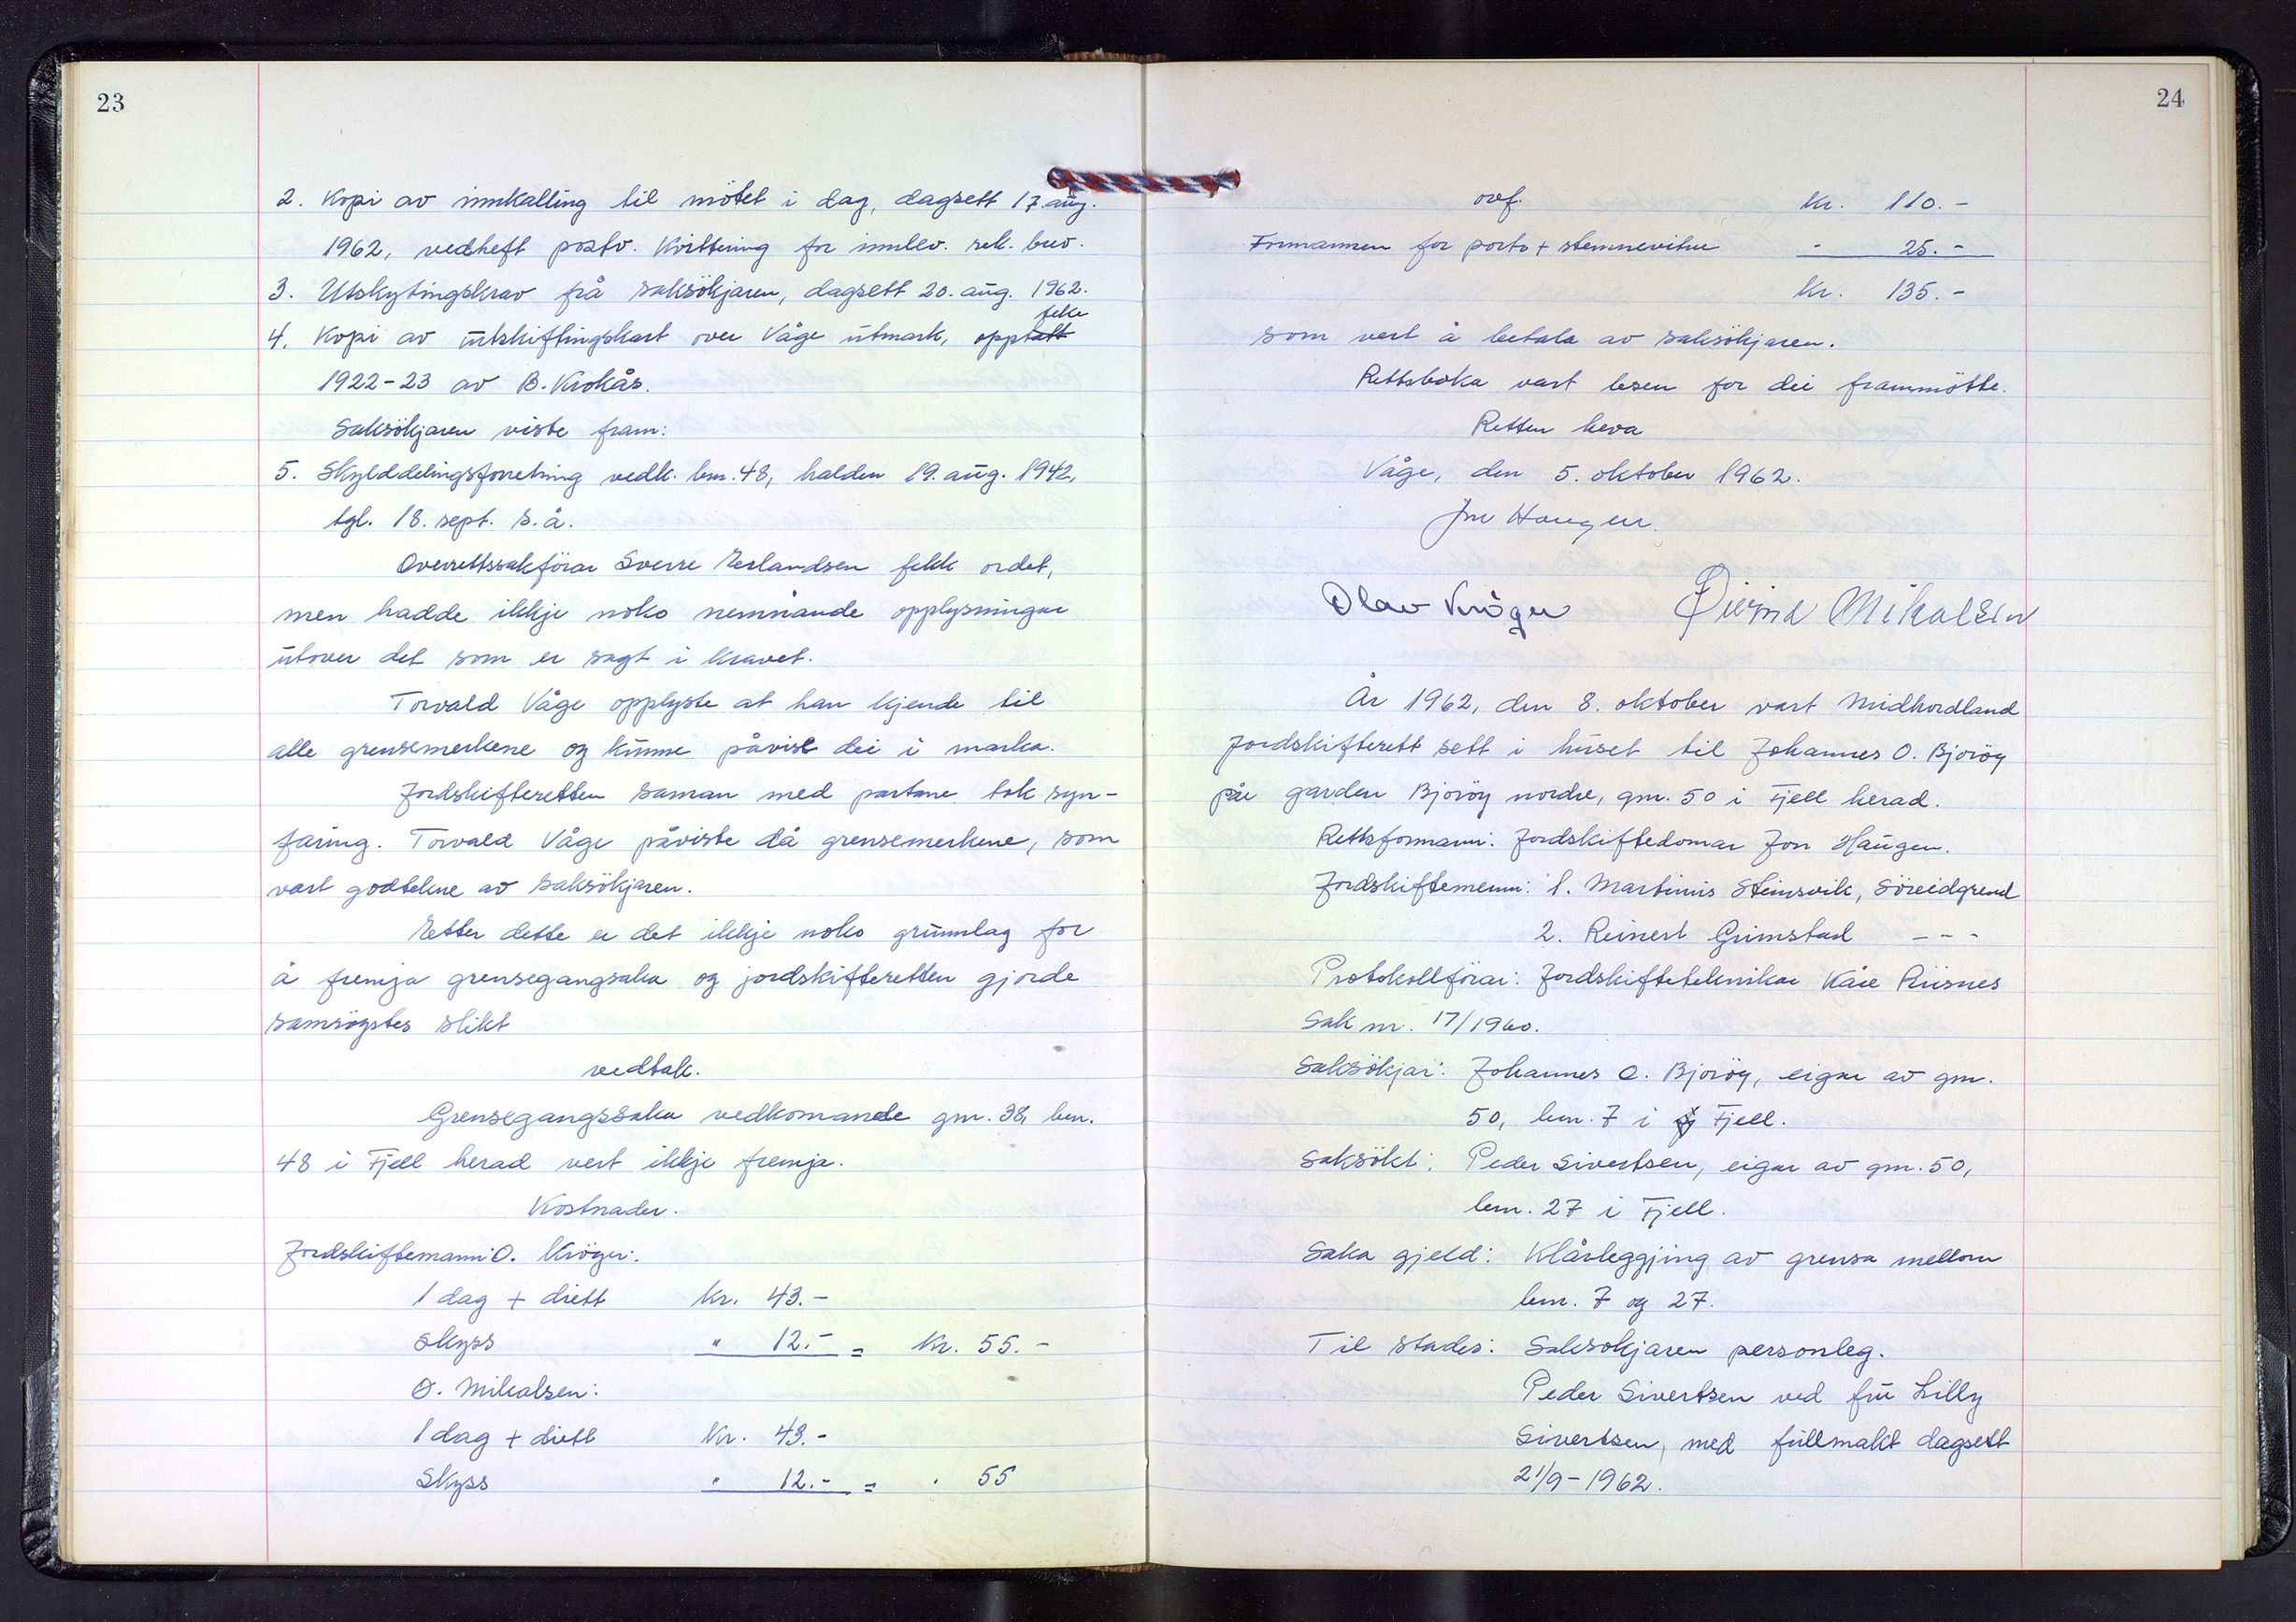 23
2. Kopi av innkalling til mötet i dag, dagsett 17. aug.
1962, vedheft postv. Kvittering for innlev. rek. brev.
3. Utskytingskrav frå saksökjaren, dagsett 20. aug. 1962.
teke
4. Kopi av utskiftingskart over Våge utmark, opptatt
1922-23 av B. Krokås.
Saksökjaren viste fram:
5. Skylddelingsforretning vedk. bnr. 48, halden 19. aug. 1942,
tgl. 18. sept. s.å.
Overrettssakförar Sverre Erlandsen fekk ordet,
men hadde ikkje noko nemnande opplysningar
utover det som er sagt i kravet.
Torvald Våge opplyste at han kjende til
alle grensemerkene og kunne påvise dei i marka.
Jordskifteretten saman med partane tok syn-
faring. Torvald Våge påviste då grensemerkene, som
vart godtekne av saksökjaren.
Etter dette er det ikkje noko grunnlag for
å fremja grensegangsaka og jordskifteretten gjorde
samröystes slikt
vedtak.
Grensegangssaka vedkomande gnr. 38, bnr.
48 i Fjell herad vert ikkje fremja.
Kostnader.
Jordskiftemann: O. Kröger:
1 dag + diett Kr. 43.-
Skyss " 12.- = Kr. 55.-
Ö. Mikalsen:
1 dag + diett Kr. 43.-
Skyss " 12.- = " 55
24
ovf. Kr. 110.-
Formannen for porto + stemnevitne " 25.-
Kr. 135.-
som vert å betala av saksökjaren.
Rettsboka vart lesen for dei frammötte.
Retten heva
Våge, den 5. oktober 1962.
Jon Haugen.
Olav Kröger Öivind Mikalsen
År 1962, den 8. oktober vart Midhordland
jordskifterett sett i huset til Johannes O. Bjoröy
på garden Bjoröy nordre, gnr. 50 i Fjell herad.
Rettsformann: Jordskiftedomar Jon Haugen.
Jordskiftemenn: 1. Martinus Steinsvik, Söreidgrend
2. Reinert Grimstad - - -
Protokollförar: Jordskifteteknikar Kåre Riisnes
Sak nr. 17/1960.
Saksökjar: Johannes O. Bjoröy, eigar av gnr.
50, bnr. 7 i Fjell.
Saksökt: Peder Sivertsen, eigar av gnr. 50,
bnr. 27 i Fjell.
Saka gjeld: Klårleggjing av grensa mellom
bnr. 7 og 27.
Til stades: Saksokjaren personleg.
Peder Sivertsen ved fru Lilly
Sivertsen, med fullmakt dagsett
21/9-1962.